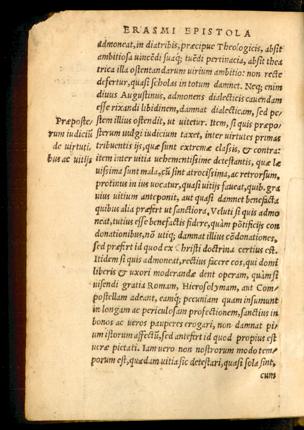 ERASMI EPISTOLA
admoneat, in diatribis, præcipue Theologicis, absit
ambitiosa vincēdi suaq; tuēdi pertinacia, absit thea
trica illa ostentandarum virium ambitio: non recte
defertur, quasi scholas in totum damnet. Neq; enim
divus Augustinus, admonens dialecticis cavendam
esse rixandi libidinem, damnat dialecticam, sed pe-
stem illius ostendit, ut vitetur. Item, si quis præpo-
Præposte/
sterum vulgi iudicium taxet, inter virtutes primas
rum iudiciū
tribuentis ijs, quæ sunt extremæ classis, & contra:
de virtuti,
item inter vitia vehementissime detestantis, quæ le
bus ac vitijs
vissima sunt mala, cū sint atrocissima, ac retrorsum,
protinus in ius vocatur, quasi vitijs faveat, quib. gra
vius vitium anteponit, aut quasi damnet benefacta
quibus alia præfert ut sanctiora, Veluti si quis admo
neat, tutius esse benefactis fidere, quàm pōtificijs con
donationibus, nō utiq; damnat illius cōdonationes,
sed præfert id quod ex Christi doctrina certius est.
Itidem si quis admoneat, rectius facere eos, qui domi
liberis & uxori moderandæ dent operam, quàm si
visendi gratia Romam, Hierosolymam, aut Com-
postellam adeant, eamq; pecuniam quam insumunt
in longam ac periculosam profectionem, sanctius in
bonos ac veros pauperes erogari, non damnat pi-
um istorum affectū, sed antefert id quod propius est
veræ pietati. Iam vero non nostrorum modo tem-
porum est, quædam vitia sic detestari, quasi sola sint,
cum